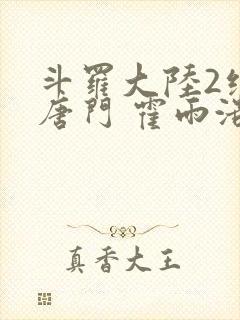 斗羅大陸2
唐門 霍雨
真香大王